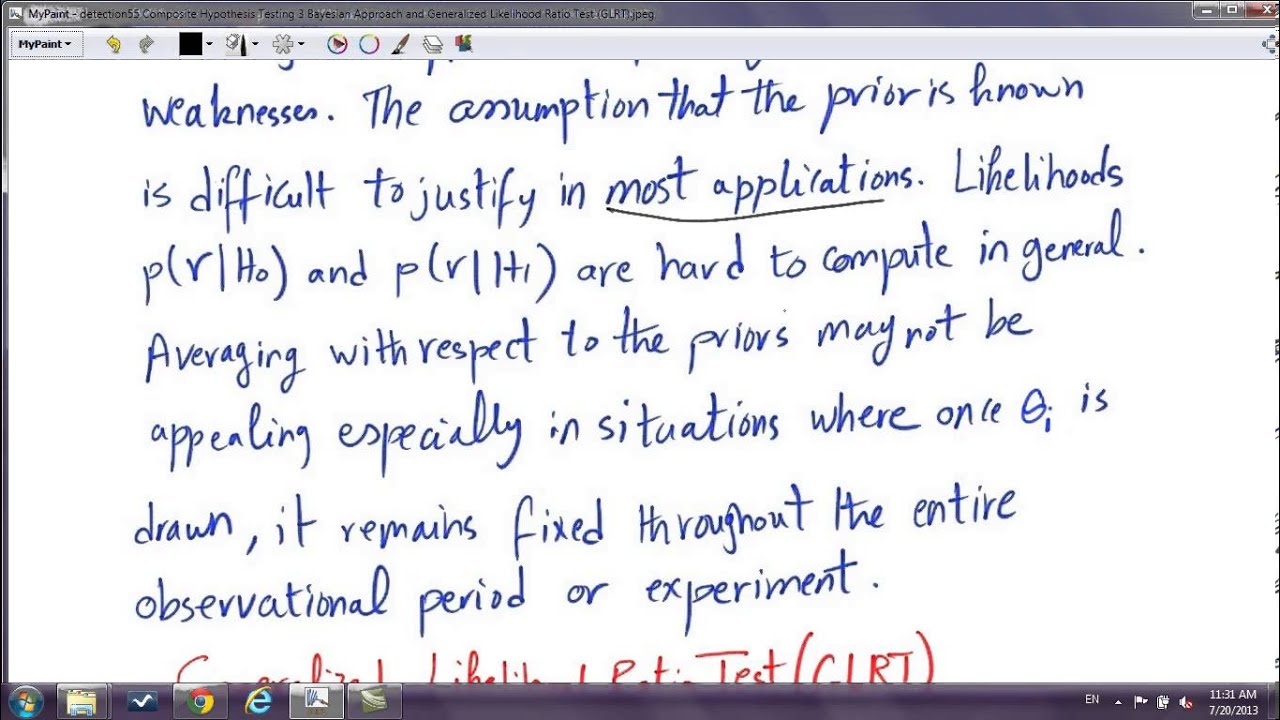 MyPaint - detection55 Composite Hypothesis Testing 3 Bayesian Approach and Generalized Likelihood Ratio Test (GLRT).jpeg
MyPaint
weaknesses. The assumption that the prior is known
is difficult to justify in most applications. Likelihoods
p(r|H0) and p(r|H1) are hard to compute in general.
Averaging with respect to the priors may not be
appealing especially in situations where once θi is
drawn, it remains fixed throughout the entire
observational period or experiment.
Generalized Likelihood Ratio Test (GLRT)
EN
11:31 AM
7/20/2013